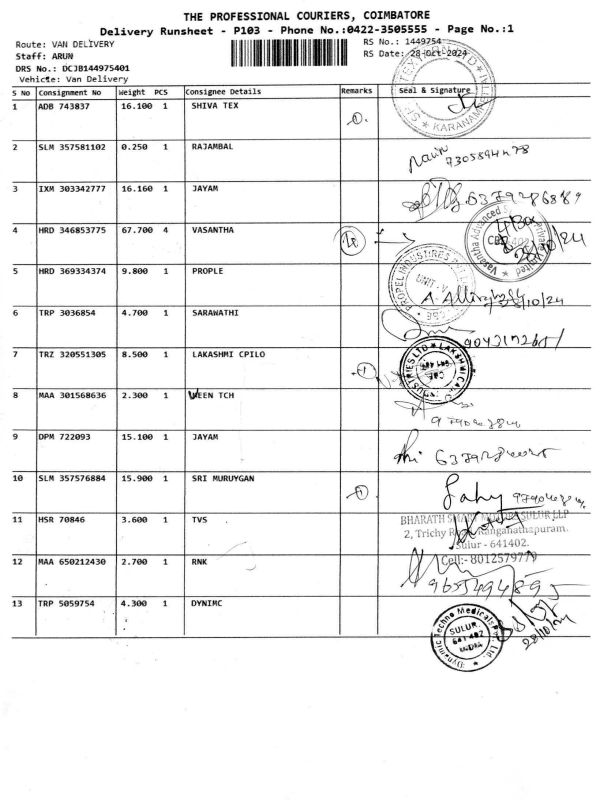 THE PROFESSIONAL COURIERS, COIMBATORE
Delivery Runsheet - P103 - Phone No.:0422-3505555 - Page No.:1
Route: VAN DELIVERY
RS No.: 1449754
Staff: ARUN
RS Date: 28-Oct-2024
DRS No.: DCJB144975401
Vehicle: Van Delivery
S No Consignment No Weight PCS Consignee Details Remarks Seal & Signature
1 ADB 743837 16.100 1 SHIVA TEX
KARANAM
2 SLM 357581102 0.250 1 RAJAMBAL
9305894478
3 IXM 303342777 16.160 1 JAYAM
4 HRD 346853775 67.700 4 VASANTHA
4 Box
28/10/24
Vasantha Advanced
5 HRD 369334374 9.800 1 PROPLE
PROPEL INDUSTRIES
UNIT-V
28/10/24
6 TRP 3036854 4.700 1 SARAWATHI
7 TRZ 320551305 8.500 1 LAKASHMI CPILO
8 MAA 301568636 2.300 1 VEEN TCH
9 DPM 722093 15.100 1 JAYAM
10 SLM 357576884 15.900 1 SRI MURUYGAN
11 HSR 70846 3.600 1 TVS
BHARATH SULUR LLP
2, Trichy Ranganathapuram.
Sulur - 641402.
Cell:- 8012579779
12 MAA 650212430 2.700 1 RNK
9655494895
13 TRP 5059754 4.300 1 DYNIMC
Dynamic Techno Medicals Pvt. Ltd.
SULUR.
641 402
INDIA
28/10/24